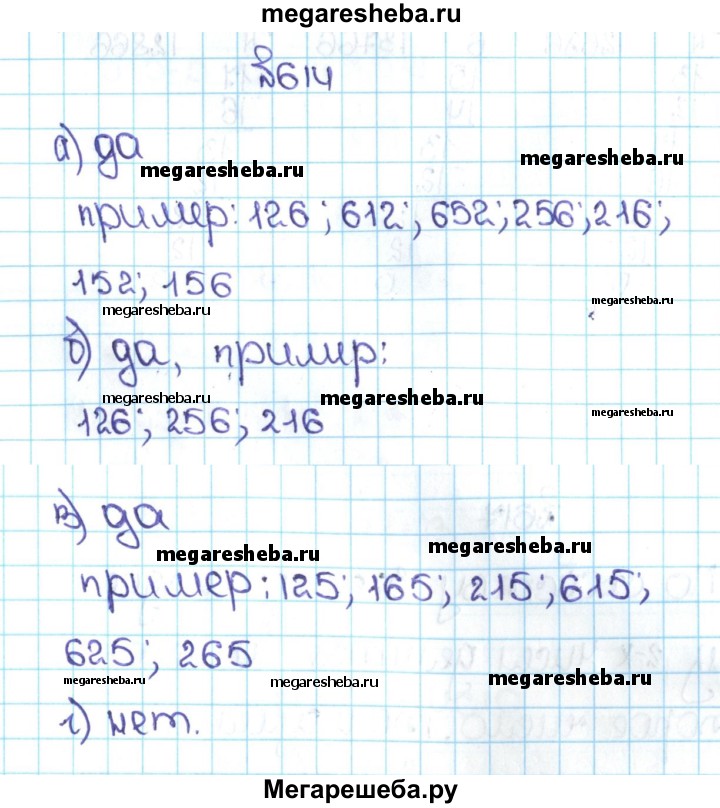 megaresheba.ru
№614
а) да
megaresheba.ru
megaresheba.ru
пример: 126; 612; 652; 256; 216;
152; 156
megaresheba.ru
megaresheba.ru
б) да, пример:
megaresheba.ru
megaresheba.ru
126; 256; 216
в) да
megaresheba.ru
megaresheba.ru
пример: 125; 165; 215; 615;
625; 265
megaresheba.ru
megaresheba.ru
megaresheba.ru
г) нет.
Мегарешеба.ру